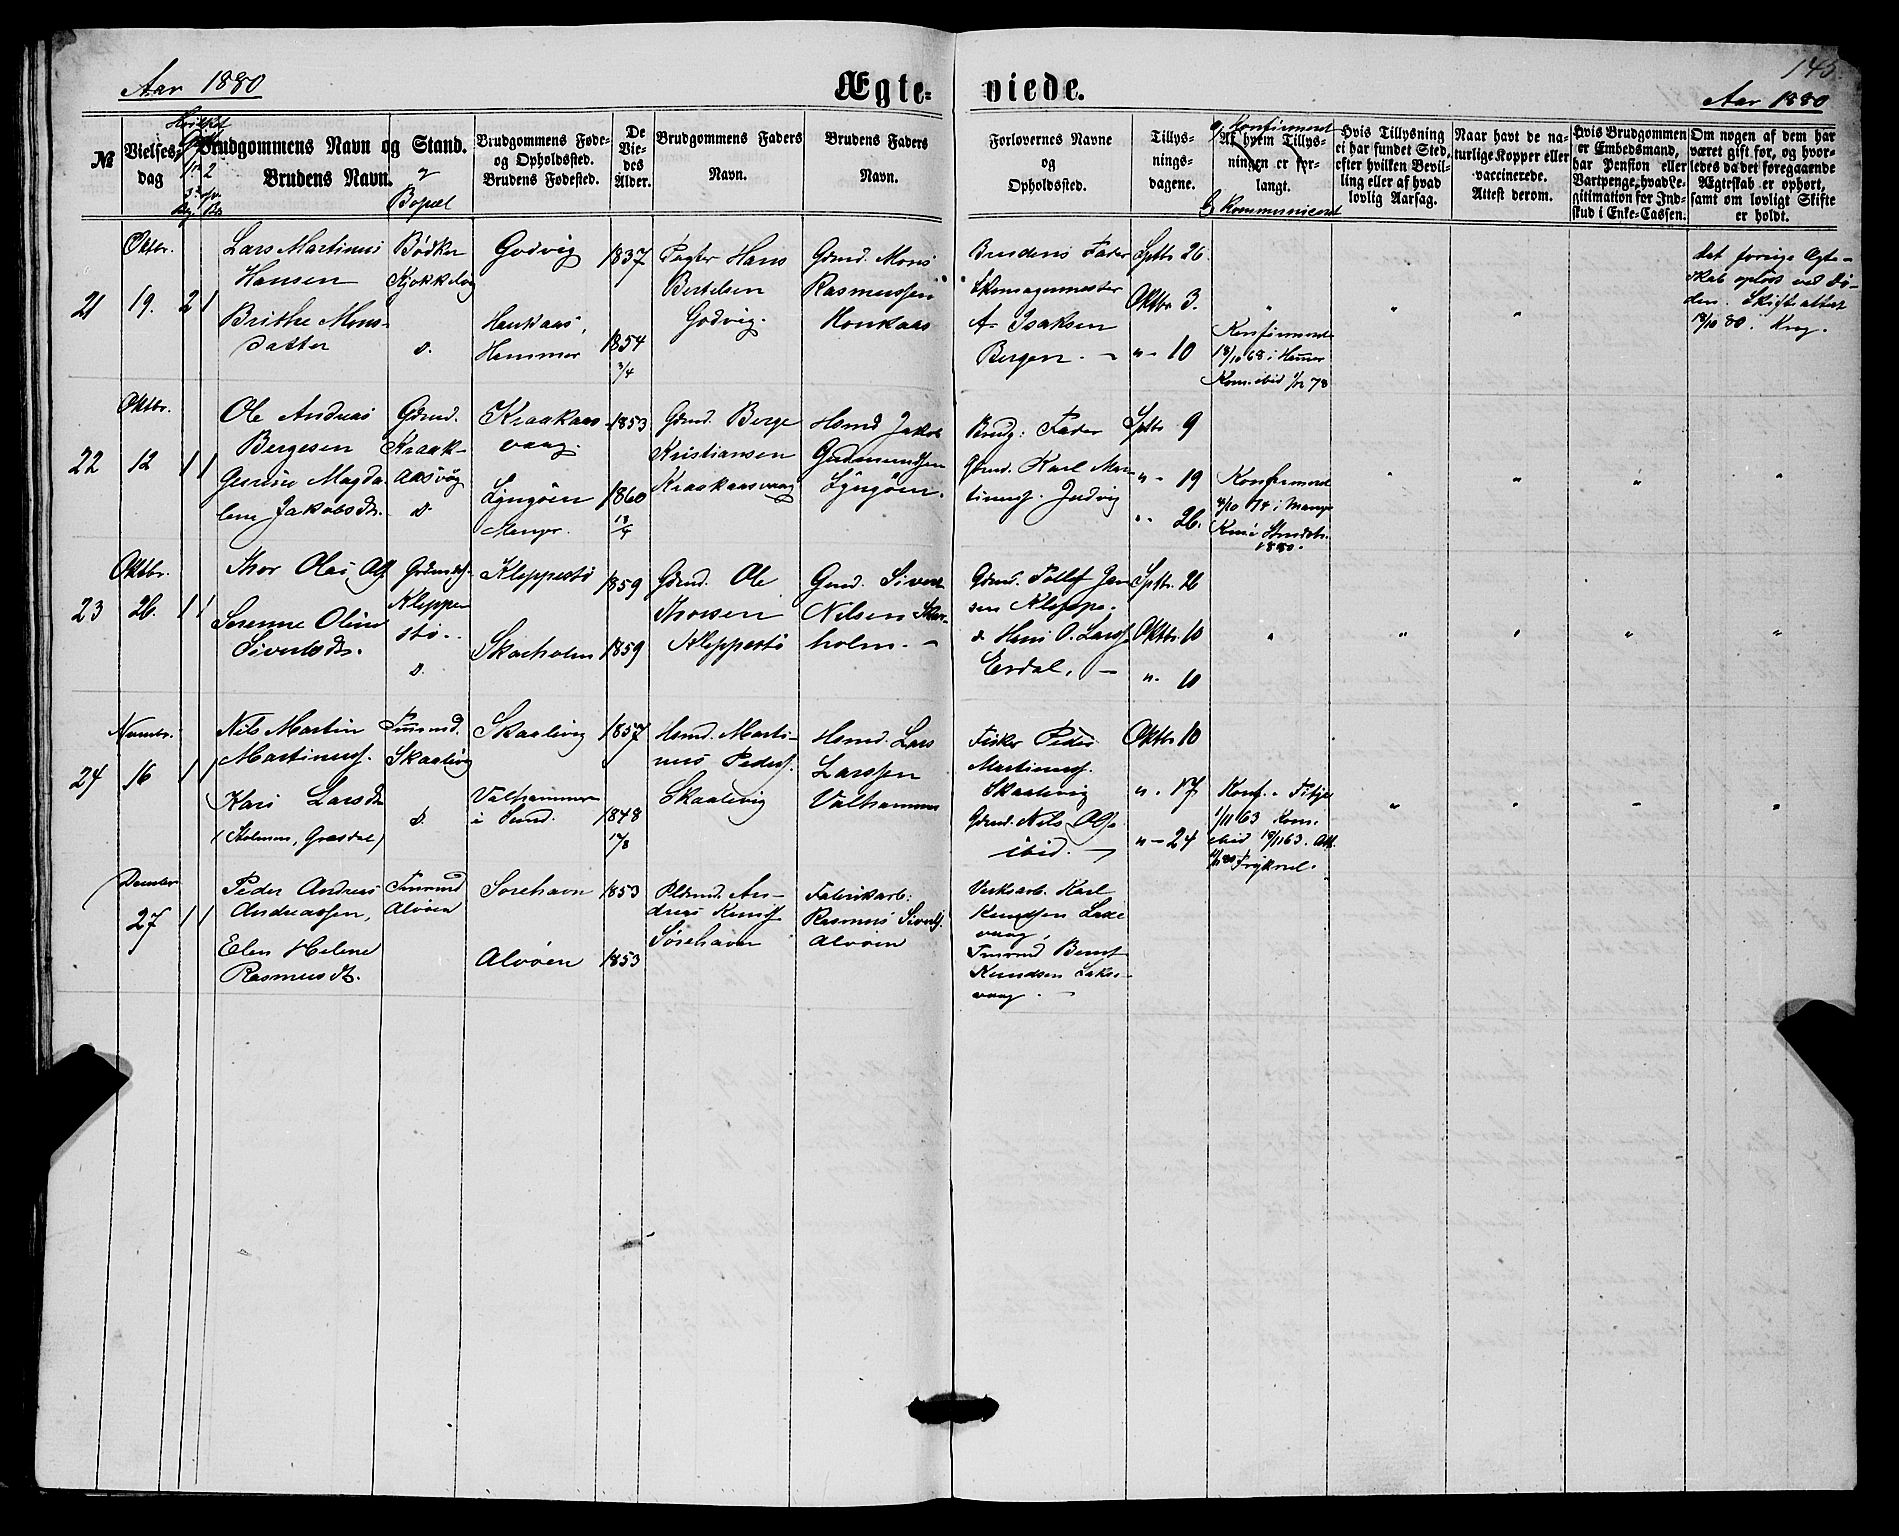 Aar 1880
Ægte-
viede.
145.
Aar 1880
№
Vielses-
dag
Brudgommens Navn og Stand.
Brudens Navn.
&
Bopæl
Brudgommens Føde-
og Opholdssted.
Brudens Fødested.
De
Vie-
des
Alder.
Brudgommens Faders
Navn.
Brudens Faders
Navn.
Forlovernes Navne
og
Opholdssted.
Tillys-
nings-
dagene.
a Konfirmered
Af hvem Tillys-
ningen er for-
langt.
b Kommuniceret
Hvis Tillysning
ei har fundet Sted,
efter hvilken Bevil-
ling eller af hvad
lovlig Aarsag.
Naar havt de na-
turlige Kopper eller
vaccinerede.
Attest derom.
Hvis Brudgommen
er Embedsmand,
har Pension eller
Vartpenge, hvad Le-
gitimation for Ind-
skud i Enke-Cassen.
Om nogen af dem har
været gift før, og hvor-
ledes da det foregaaende
Ægteskab er ophørt,
samt om lovligt Skifte
er holdt.
21
Oktbr.
19.
2 1
Lars Martinus
Hansen
Brithe Mons-
datter
Bødker
Kjøkkelvig
d.
Godvig
Haukaas,
Hammer
1837
1854
3/4
Hans
Bertelsen
Godvig.
Gdmd. Mons
Rasmussen
Haukaas
Brudens Fader
Skomagermester
A. Isaksen
Bergen. -
Septbr 26.
Oktbr 3.
" - 10
Konfirmered
18/10 68 i Hamre
Kom. ibid 78
det forrige Ægte-
skab opløst ved Dø-
den. Skifteattest
18/10 80. Krag.
22
Oktbr.
12
1 1
Ole Andreas
Bergesen
Magda-
lene Jakobsdtr.
Gdmd.
Kraak-
aasvåg
d.
Kraakaas-
vaag.
Lyngøen
Manger.
1853
1860
Gdmd. Berge
Kristiansen
Kraakaasvaag
Hsmd Jakob
Gudmundsen
Lyngøen.
Brudg: Fader
Gdmd. Karl Mar-
tinuss. Judvig
Septbr 9
" - 19
" - 26.
Konfirmered
i Manger
1880.
23
Oktbr.
26.
1 1
Thor Olai Ols.
Serenne Oline
Siverts dtr.
Kleppe-
stø.
d.
Kleppestø
Skarholm
1859
1859
Gdmd. Ole
Thorsen
Kleppestø
Gmd. Sivert
Nilsen Skar-
holm. -
Gdmd. Tollef Jan-
sen Kleppe.
& Hans O. Larss.
Erdal. -
Septbr. 26
Oktbr. 10
" - 10
24
Novmbr.
16
1 1
Nils Martin
Martinuss.
Kari Larsdtr
Skaalevig
d.
Skaalevig
Valhammer
i Sund.
1857
1848
17/8
Hsmd. Marti-
nus Peders.
Skaalevig
Hsmd. Lars
Larssen
Valhammer
Fisker Peder
Martinuss.
Skaalevig
Gdmd. Nils Ols.
ibid. -
Oktbr 10
" - 17
" - 24
Konf. i Fitje
1/11 63 Kom.
ibid 18/11 63. Att.
Decmber
27
1 1
Peder Andreas
Andreassen,
Elen Helene
Rasmusdtr.
Alvøen
Sørehavn
Alvøen
1853
1853
An-
dreas Knuds.
Sørehavn
Fabrikarb.
Rasmus Siverts.
Alvøen
Verksarb. Karl
Knudsen Laxe-
vaag,
Bernt
Knudsen Laxe-
vaag. -